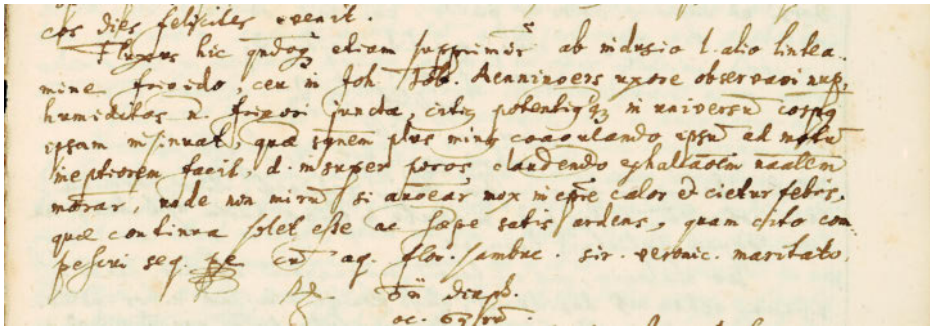 cos dies feliciter evenit.
Fluxus hic qndoq etiam supprimit ab indusio l. alio lintea
mine frigido, ceu in Joh. Tob. Renningers uxore observavi nup.
humiditas n. frigori juncta, citiq potentiq in universu corpq
ipsam insinuat, quæ sgnem plus minq coagulando ipsu ad motu
ineptiorem facit, d. insuper poros claudendo exhalaoem naalem
morar, unde non miru si augear mox in cpre calor & cietur febris,
quæ continua solet esse ac sæpe satis ardens, quam cito com
pescui seq. cu aq. flor. sambuc. sir. veronic. maritato.
diaph.
oc. 69